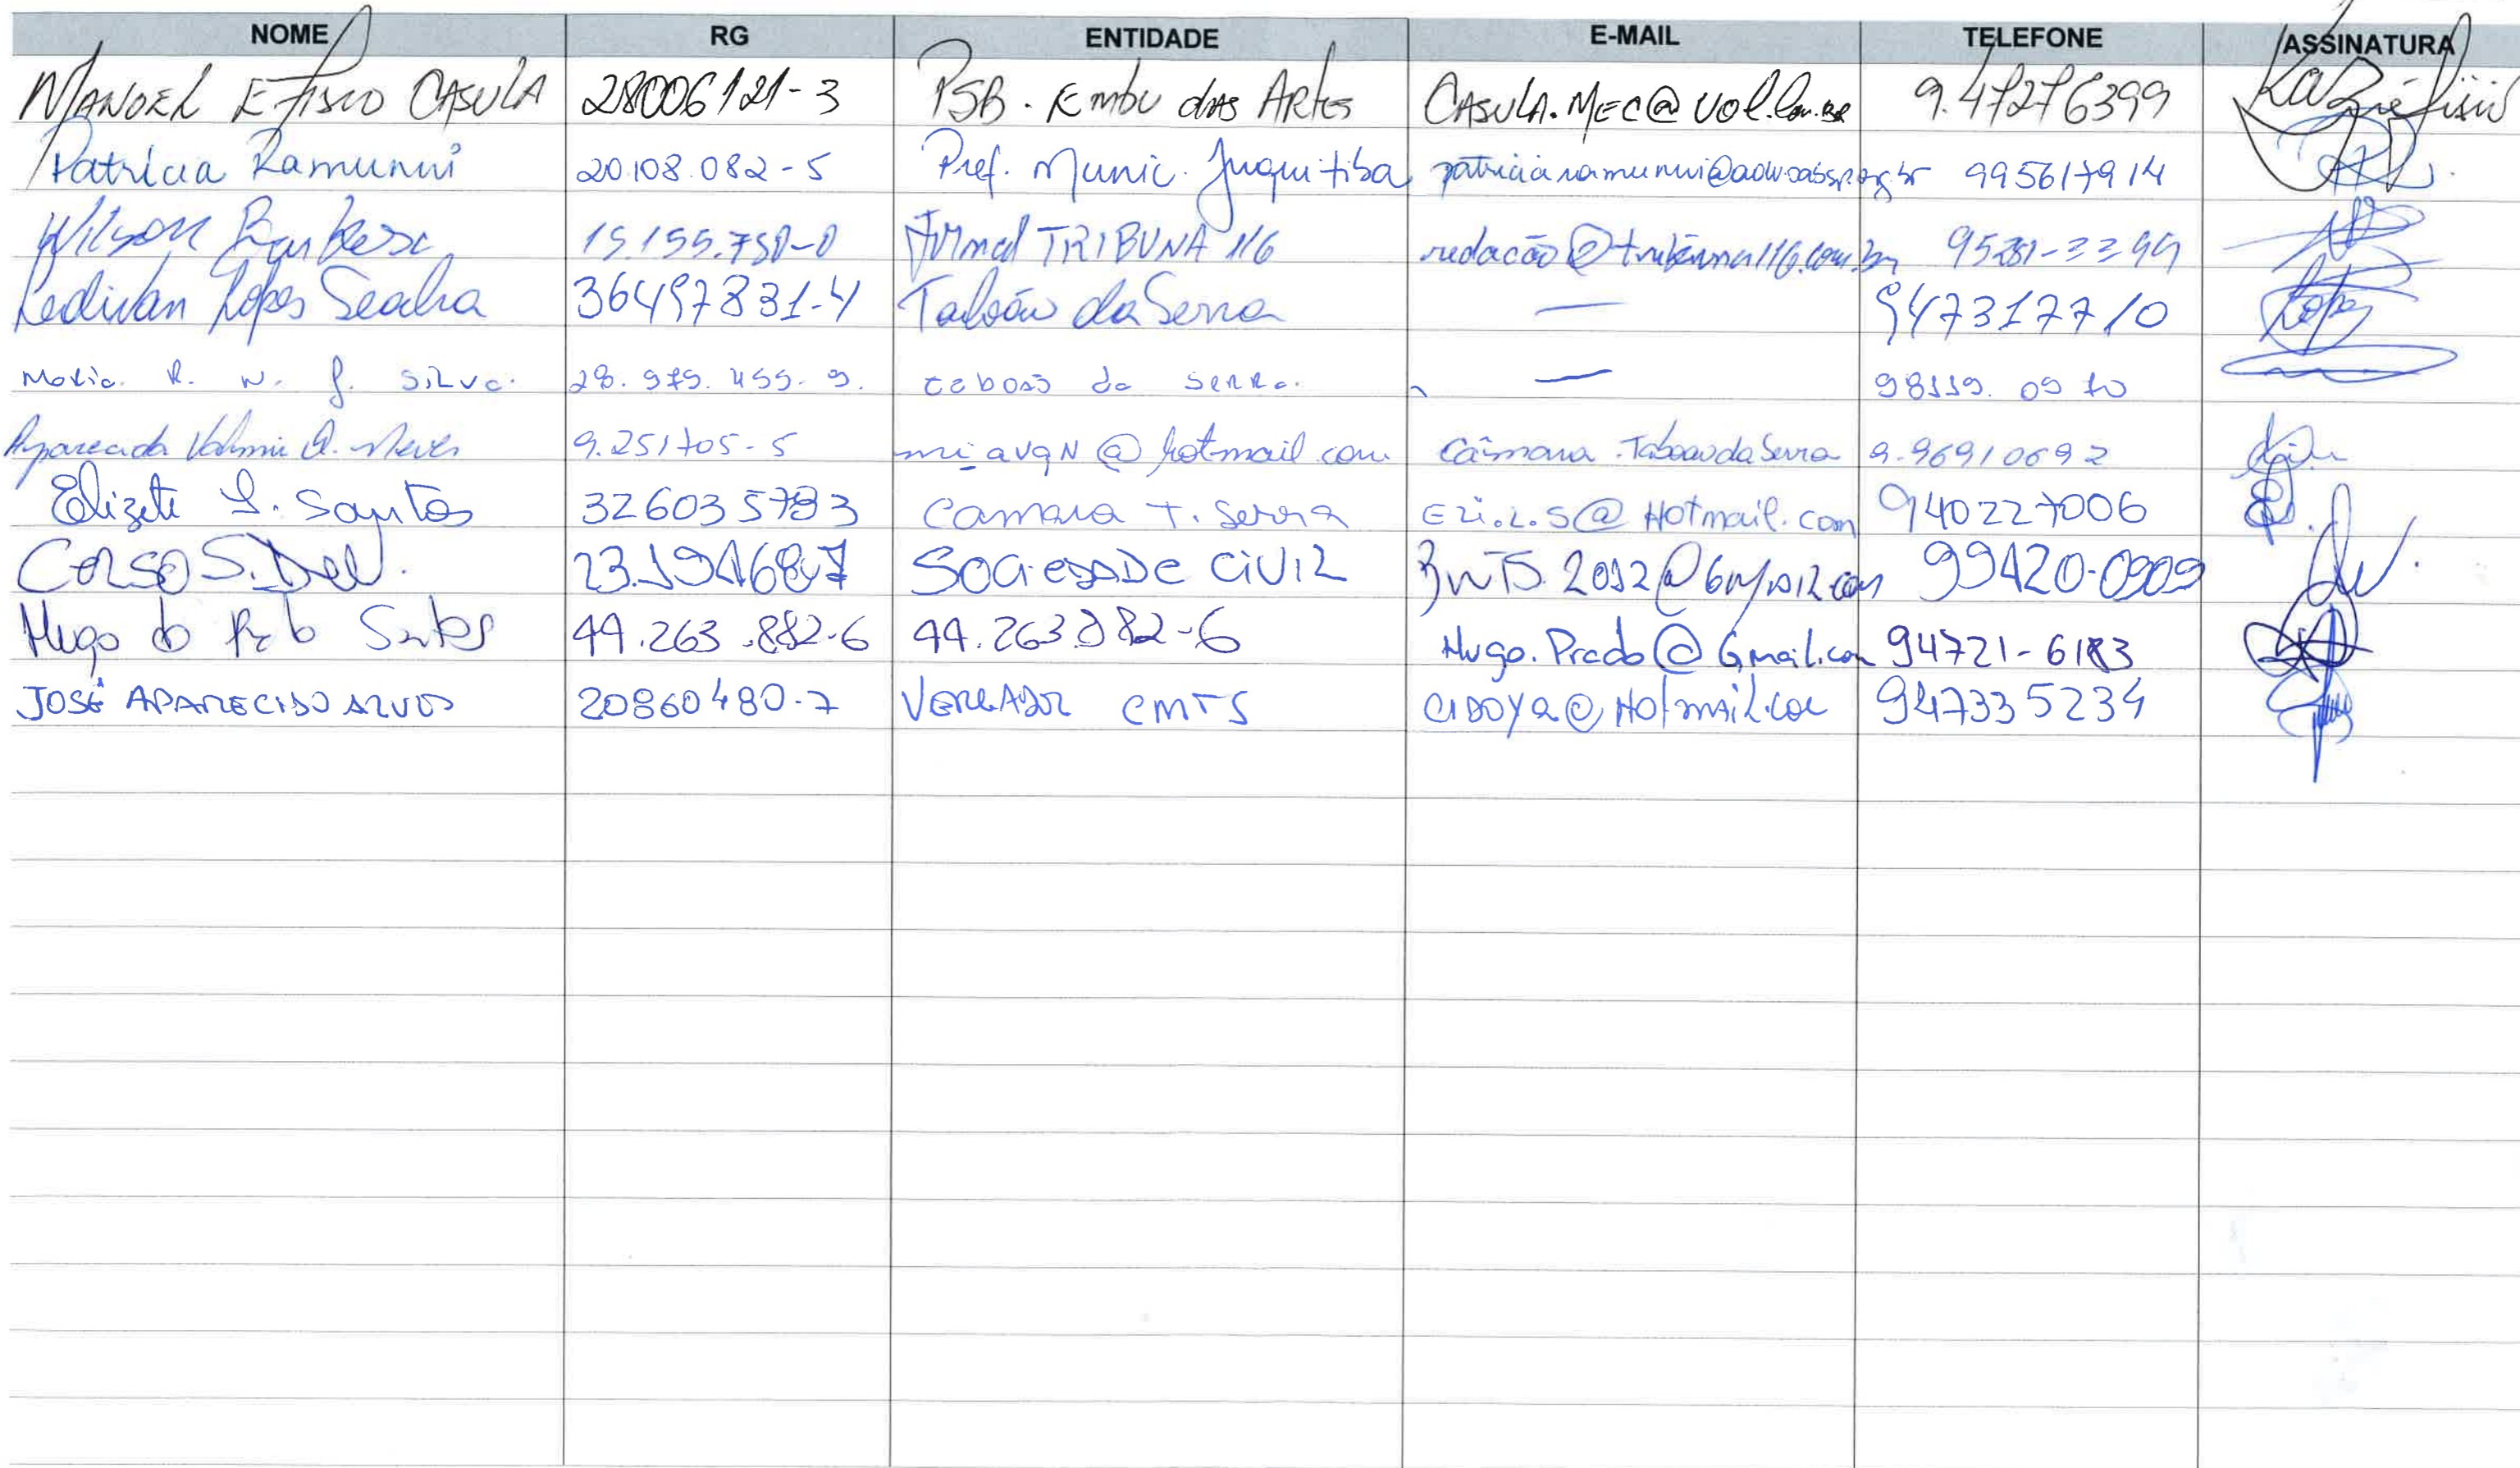 NOME RG ENTIDADE E-MAIL TELEFONE ASSINATURA
MANOEL EFISIO CASULA 28006121-3 PSB - Embu das Artes CASULA.MEC@UOL.com.BR 9.47276399
Patrícia Ramunni 20.108.082-5 Pref. Munic. Juquitiba patriciaramunni@adv.oabsp.org.br 995617914
Wilson Barbosa 15.155.750-0 Jornal TRIBUNA 116 redacão@tribuna116.com.br 95281-3399
Ledivan Lopes 36497831-4 Taboão da Serra — 947317710
Maria R. N. J. Silva. 28.979.455-9. taboão da Serra. — 98119.0970
Aparecida A. Neves 9.251705-5 mi_avqN@hotmail.com Câmara Taboao da Serra 9.96910692
Elizete S. Santos 326035793 Camara T. Serra Ezi.L.S@Hotmail.com 940227006
SOCIEDADE CIVIL 99420-0909
Hugo do Prado Santos 44.263.882-6 44.263.882-6 Hugo.Prado@Gmail.com 94721-6183
JOSÉ APARECIDO ALVES 20860480-7 VEREADOR CMTS 947335234